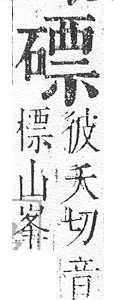 磦
彼夭切音
標山峯